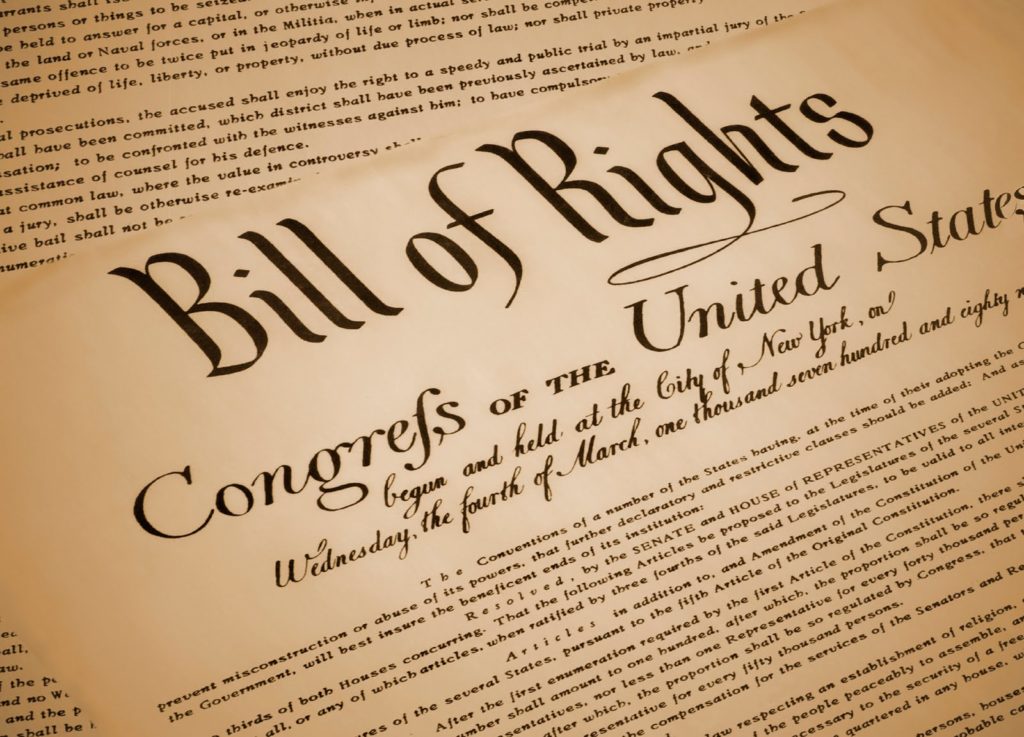 arrants shall
persons or things to be seized.
be held to answer for a capital, or otherwise
the land or Naval forces, or in the Militia, when in actual
same offence to be twice put in jeopardy of life or limb; nor shall be
deprived of life, liberty, or property, without due process of law; nor shall private property
al prosecutions, the accused shall enjoy the right to a speedy and public trial by an impartial jury of the
hall have been committed, which district shall have been previously ascertained by law,
sation; to be confronted with the witnesses against him; to have compulsor
assistance of counsel for his defence.
at common law, where the value in controversy
a jury, shall be otherwise re-exami
ive bail shall not be
numerati
Bill of Rights
Congreſs OF THE United States
begun and held at the City of New York, on
Wednesday, the fourth of March, one thousand seven hundred and eighty
The Conventions of a number of the States having, at the time of their adopting the
prevent misconstruction or abuse of its powers, that further declaratory and restrictive clauses should be added: And as
the Government, will best insure the beneficent ends of its institution:
Resolved, by the SENATE and HOUSE of REPRESENTATIVES of the UNIT
thirds of both Houses concurring. That the following Articles be proposed to the Legislatures of the several
all, or any of which articles, when ratified by three fourths of the said Legislatures, to be valid to all
Articles in addition to, and Amendment of the Constitution of the
res of the several States, pursuant to the fifth Article of the Original Constitution.
After the first enumeration required by the first Article of the Constitution, there
mber shall amount to one hundred, after which, the proportion shall be so regul
entatives, nor less than one Representative for every forty thousand
after which, the proportion shall be so regulated by Congress, that
resentative for every fifty thousand persons.
the compensation for the services of the Senators and
law respecting an establishment of religion,
of the people peaceably to assemble,
cessary to the security of a free
quartered in any house,
persons,
probable
law.
shall
law.
of the
and no
and the p
shall be